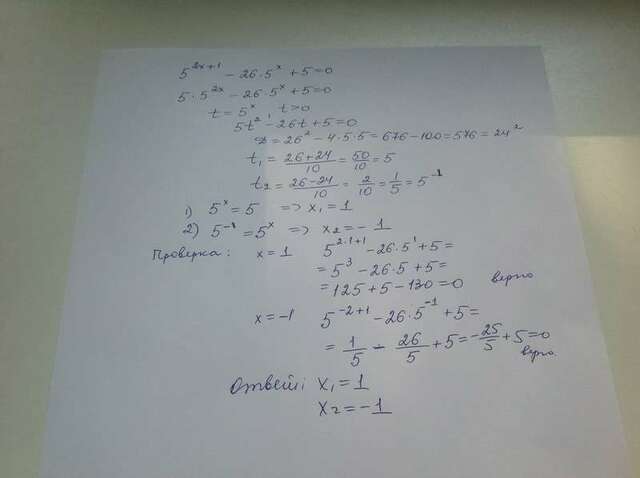 5^{2x+1} - 26·5^x + 5 = 0
5·5^{2x} - 26·5^x + 5 = 0
t = 5^x, t>0
5t² - 26t + 5 = 0
D = 26² - 4·5·5 = 676 - 100 = 576 = 24²
t₁ = (26+24)/10 = 50/10 = 5
t₂ = (26-24)/10 = 2/10 = 1/5 = 5^{-1}
1) 5^x = 5 => x₁ = 1
2) 5^{-1} = 5^x => x₂ = -1
Проверка: x = 1 5^{2·1+1} - 26·5^1 + 5 =
= 5³ - 26·5 + 5 =
= 125 + 5 - 130 = 0 верно
x = -1 5^{-2+1} - 26·5^{-1} + 5 =
= 1/5 - 26/5 + 5 = -25/5 + 5 = 0
верно
Ответ: x₁ = 1
x₂ = -1